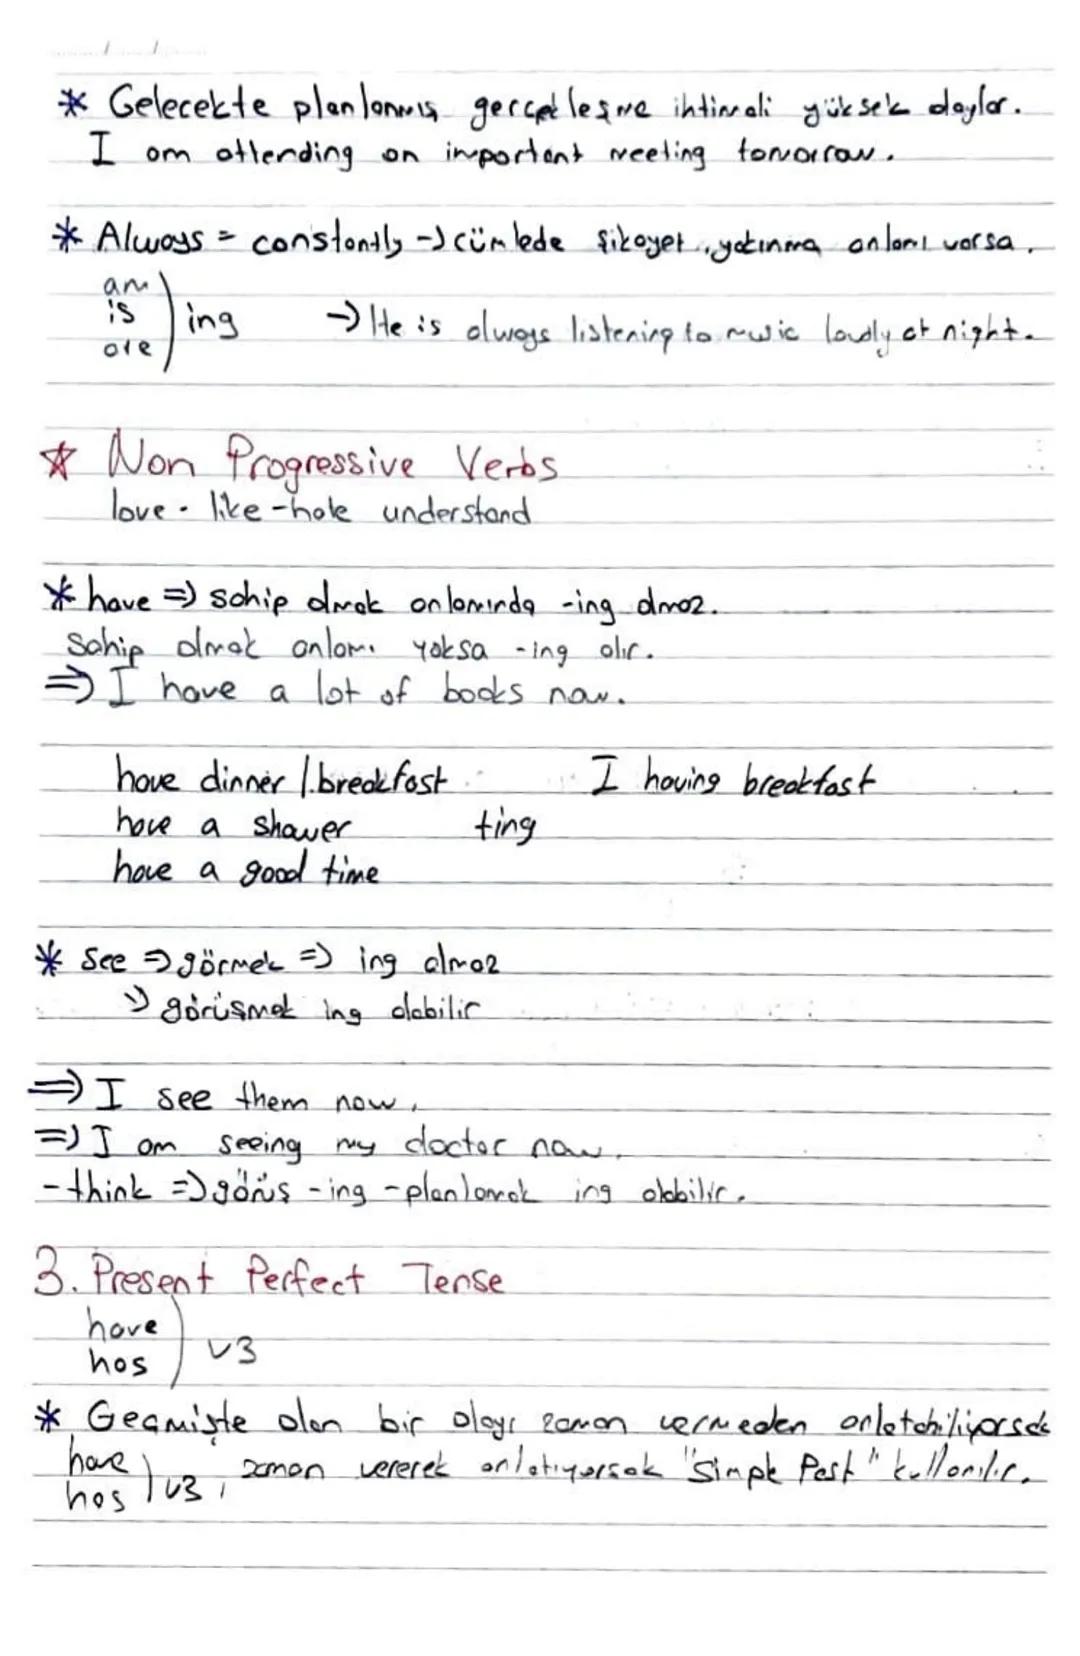 * Gelecekte planlanmış gerçekleşme ihtimali yüksek olaylar.
I am attending an important meeting tomorrow.
* Always = constantly → cümlede şikayet, yakınma anlamı varsa.
am
is ) ing → He is always listening to music loudly at night.
are
☆ Non Progressive Verbs
love - like - hate understand
* have ⇒ sahip olmak anlamında -ing almaz.
Sahip olmak anlamı yoksa -ing alır.
⇒ I have a lot of books now.
have dinner / breakfast I having breakfast
have a shower ting
have a good time
* See ⇒ görmek ⇒ ing almaz
⇒ görüşmek ing alabilir
⇒ I see them now.
⇒ I am seeing my doctor now.
- think ⇒ görüş -ing - planlamak ing alabilir.
3. Present Perfect Tense
have
has ) v3
* Geçmişte olan bir olayı zaman vermeden anlatabiliyorsak
have
has ) v3, zaman vererek anlatıyorsak "Simple Past" kullanılır.